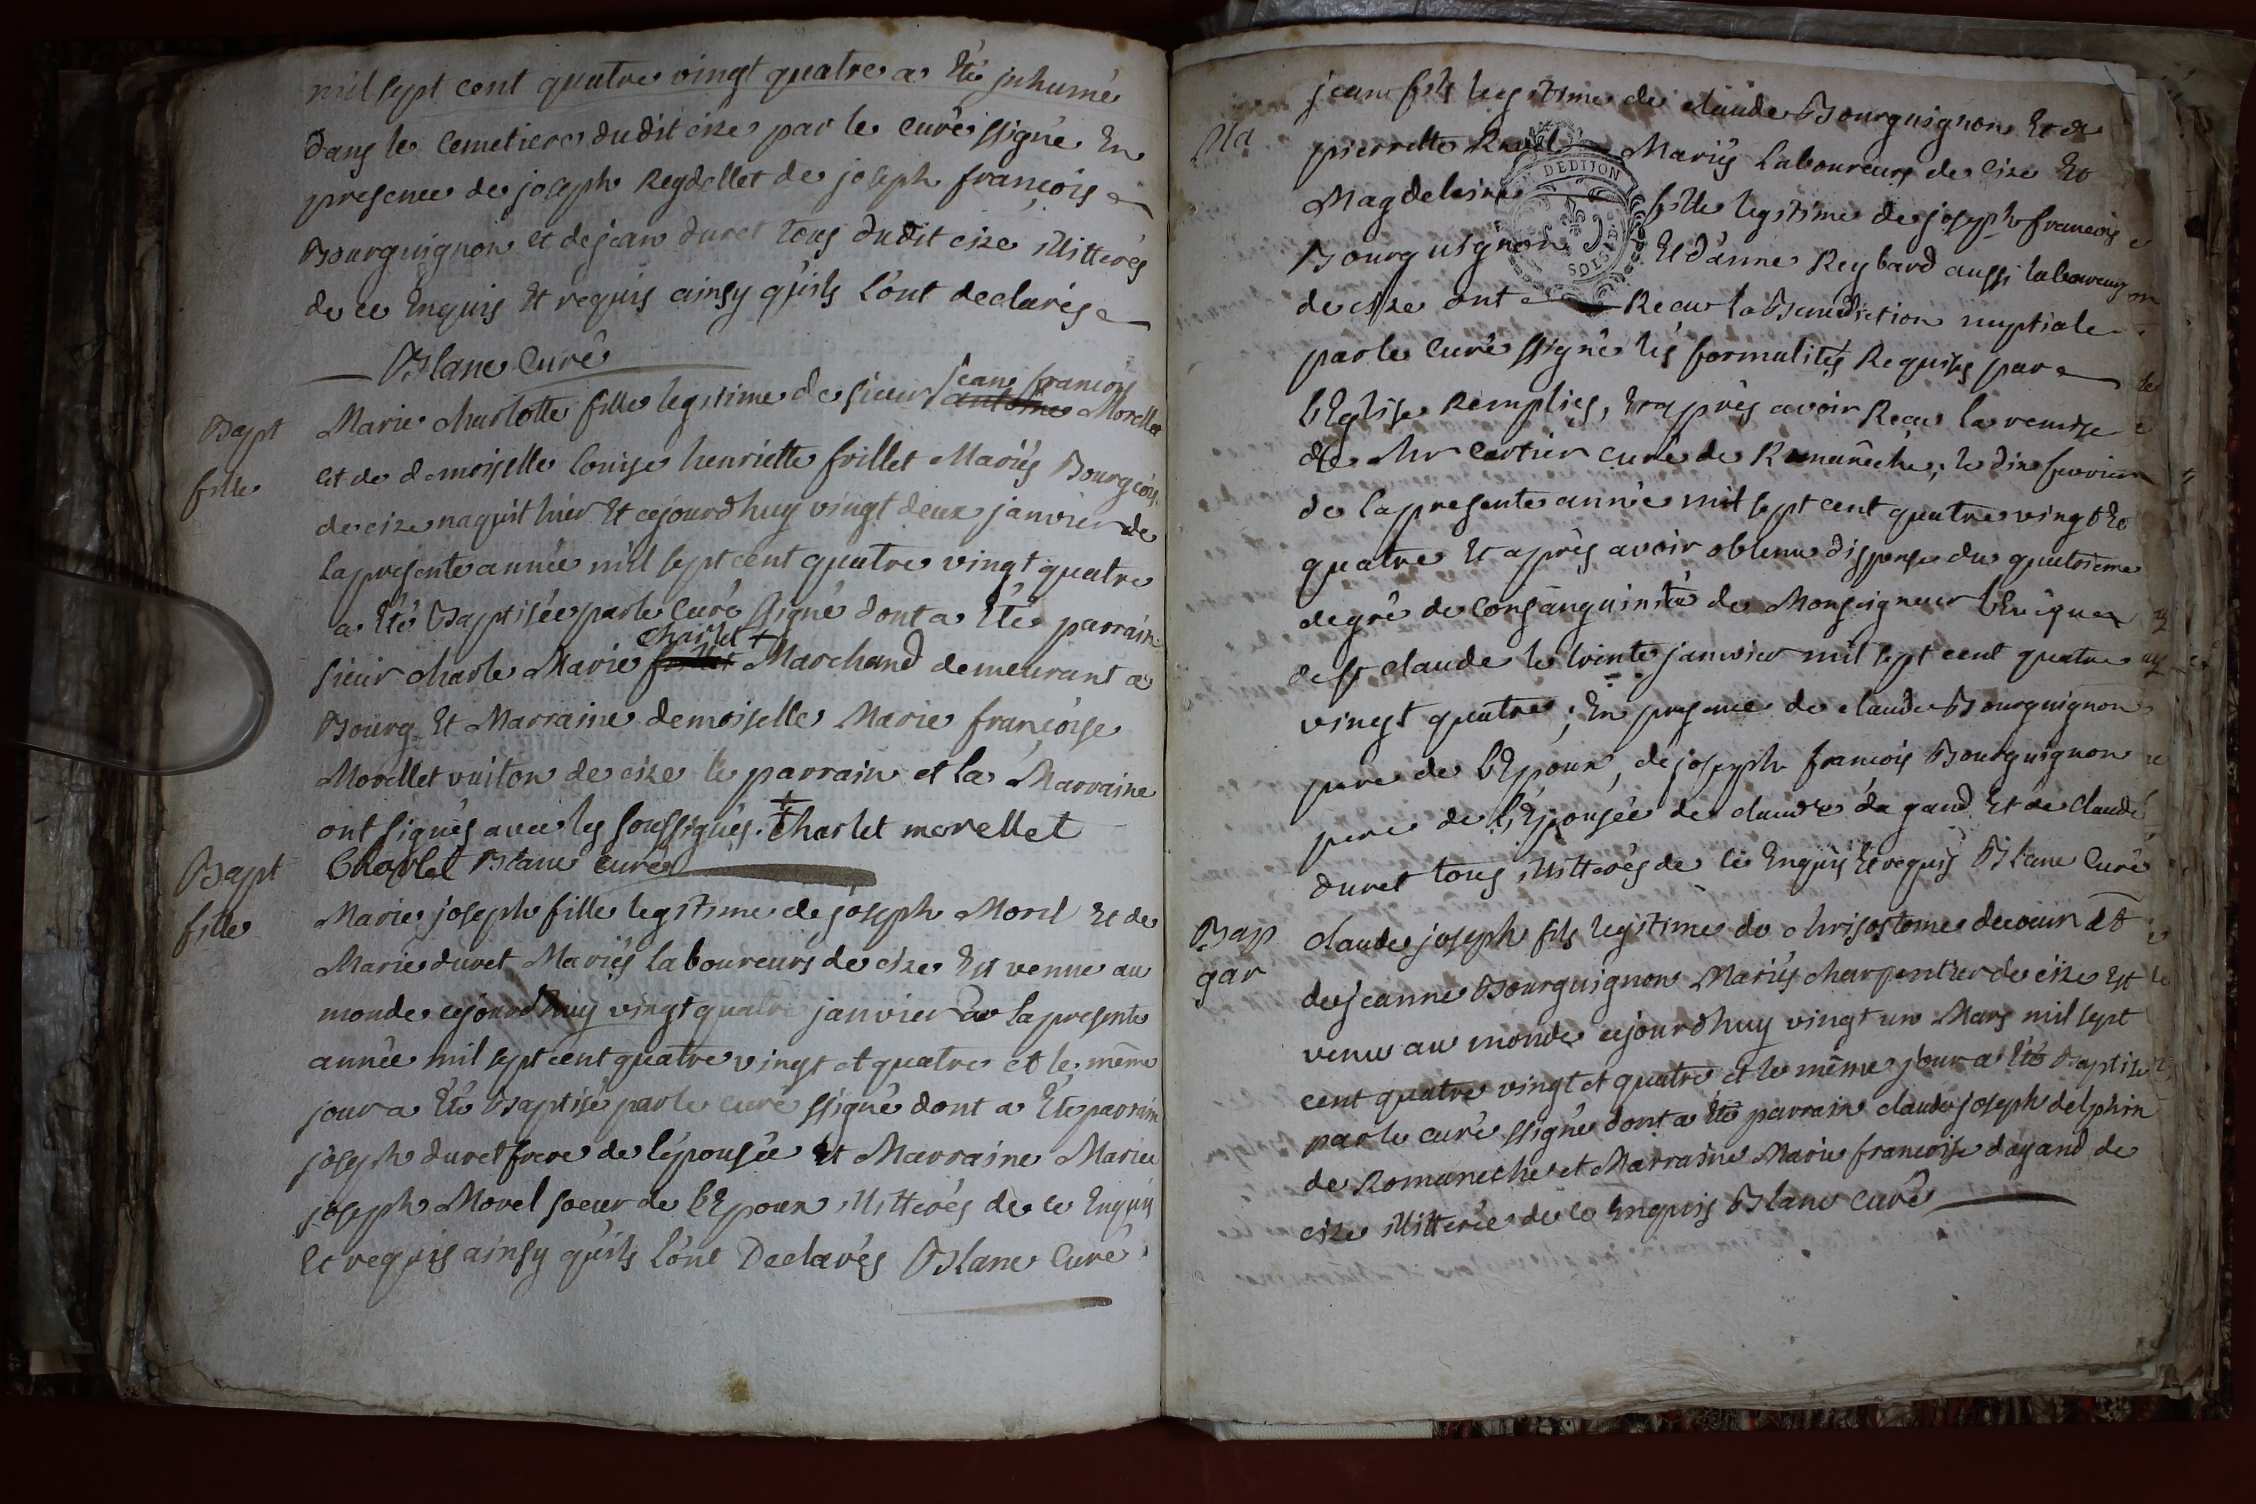 mil sept cent quatre vingt quatre a Eté jnhumé
dans le Cemetiere dudit cize par le curé ssigné En
presence de joseph Reydellet de joseph françois
Bourguignon et de jean duret tous dudit cize illitterés
de ce Enquis Et requis ainsy qu'ils l'ont declarés
Blanc Curé
Bapt
fille
jean francois
Marie charlotte fille legitime de sieur antoine Morellet
et de demoiselle louise henriette frillet Mariés Bourgeois
de cize naquit hier Et cejourdhuy vingt deux janvier de
la presente année mil sept cent quatre vingt quatre
a Eté Baptisée par le Curé ssigné dont a Eté parrain
charlet +
sieur charle Marie Marchand demeurant a
Bourg Et Marraine demoiselle Marie françoise
Morellet vuiton de cize le parrain et la Marraine
ont signés avec les soussignés. ‡ charlet morellet
Charlet Blanc curé
Bapt
fille
Marie joseph fille legitime de joseph Morel Et de
Marie duret Mariés laboureurs de cize Est venue au
monde cejourdhuy vingt quatre janvier de la presente
année mil sept cent quatre vingt et quatre et le même
jour a Eté Baptisé par le curé ssigné dont a Eté parrain
joseph duret frere de l'épousée Et Marraine Marie
joseph Morel soeur de l'Epoux illitterés de ce Enquis
Et requis ainsy qu'ils l'ont Declarés Blanc Curé
Ma
jean fils legitime de claude Bourguignon Et de
pierrette Ravet Mariés laboureurs de cize Et
Magdelaine fille legitime de joseph francois
DEDIJON
SOLS D
Bourguignon Et d'anne Reybard aussi laboureurs
de cize ont Recu la Benediction nuptiale
par le Curé ssigné les formalités Requises par
l'Eglise Remplies, Et après avoir Recu la remise
de Mr Cartier curé de Romanêche, le dix fevrier
de la presente année mil sept cent quatre vingt Et
quatre Et après avoir obtenu dispense du quatrieme
degré de Consanguinité de Monseigneur l'Eveque
de st claude le trente janvier mil sept cent quatre
vingt quatre; En presence de claude Bourguignon
pere de l'Epoux, de joseph francois Bourguignon
pere de l'Epousée de claude dagand Et de claude
duret tous illitterés de ce Enquis Et requis Blanc Curé
Bap
gar
claude joseph fils legitime de chrisostome decoeur Et
de jeanne Bourguignon Mariés charpentier de cize Est
venu au monde cejourdhuy vingt un Mars mil sept
cent quatre vingt et quatre et le même jour a Eté Baptisé
par le curé ssigné dont a Eté parrain claude joseph delphin
de Romaneche et Marraine Marie francoise dagand de
cize illitterée de ce Enquis Blanc Curé